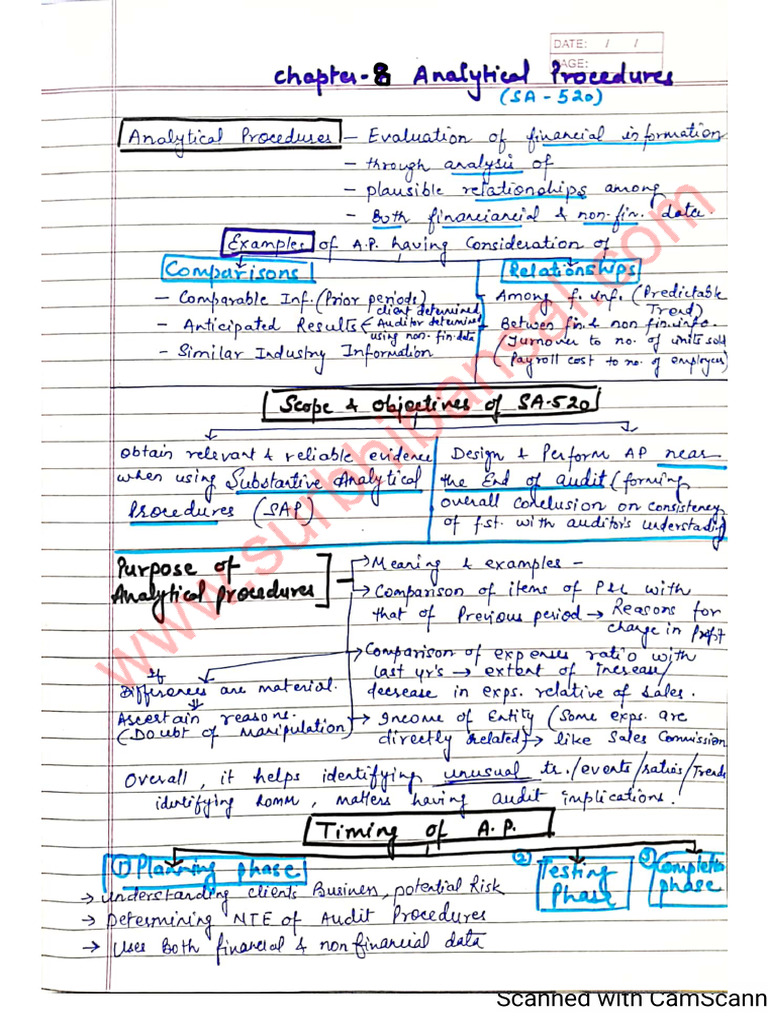 DATE: / /
PAGE:
Chapter-8 Analytical Procedures
(SA-520)
Analytical Procedures – Evaluation of financial information
– through analysis of
– plausible relationships among
– Both financiancial & non-fin. data.
Examples of A.P. having Consideration of
Comparisons
– Comparable Inf. (Prior periods)
– Anticipated Results (client determined
Auditor determined
using non-fin data
– Similar Industry Information
Relationships
– Among f. inf. (Predictable
Trend)
– Betwen fin & non fin.info.
(Turnover to no. of units sold
(Payroll cost to no. of employees)
Scope & Objectives of SA-520
obtain relevant & reliable evidence
when using Substantive Analytical
Procedures (SAP)
Design & Perform AP near
the End of audit (forming
overall conclusion on consistency
of fst. with auditor's understanding
Purpose of
Analytical procedures
→ Meaning & examples –
→ Comparison of items of P&L with
that of Previous period → Reasons for
change in Profit
→ Comparison of expenses ratio with
last yr's → extent of increase/
decrease in exps. relative of sales.
→ Income of Entity (Some exps. are
directly related) → like Sales Commission
If
Differences are material.
Ascertain reasons.
(Doubt of manipulation)
Overall, it helps identifying unusual tr./events/ratios/Trends
identifying ROMM, matters having audit implications.
Timing of A.P.
① Planning phase
→ understanding clients Business, potential Risk
→ Determining NTE of Audit Procedures
→ Uses Both financial & non financial data
② Testing
Phase
③ Completion
phase
www.surbhibansal.com
Scanned with CamScann